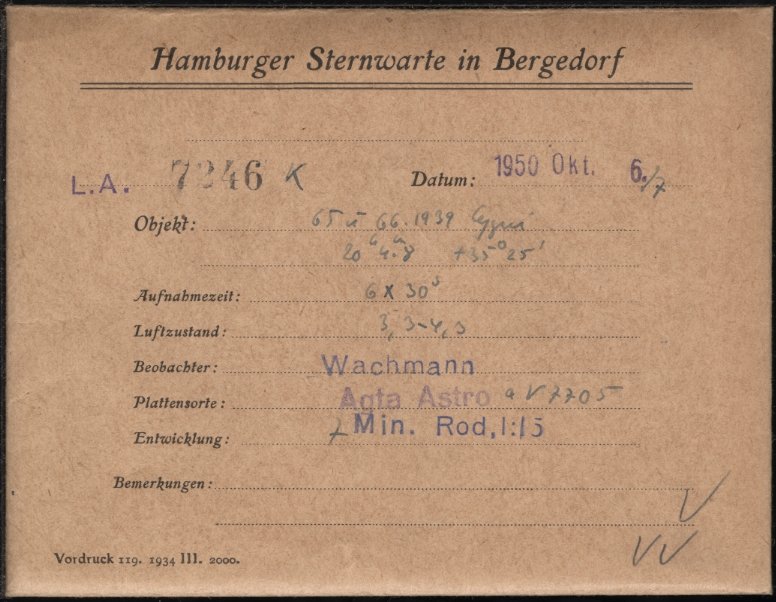 Hamburger Sternwarte in Bergedorf
L.A. 7246 K Datum: 1950 Okt. 6./7
Objekt: 65 u 66.1939 Cygni
20ʰ 4.ᵐ8 +35° 25'
Aufnahmezeit: 6 x 30ˢ
Luftzustand: 3, 3-4, 3
Beobachter: Wachmann
Plattensorte: Agfa Astro 7705
Entwicklung: 7 Min. Rod, 1:15
Bemerkungen:
Vordruck 119. 1934 III. 2000.